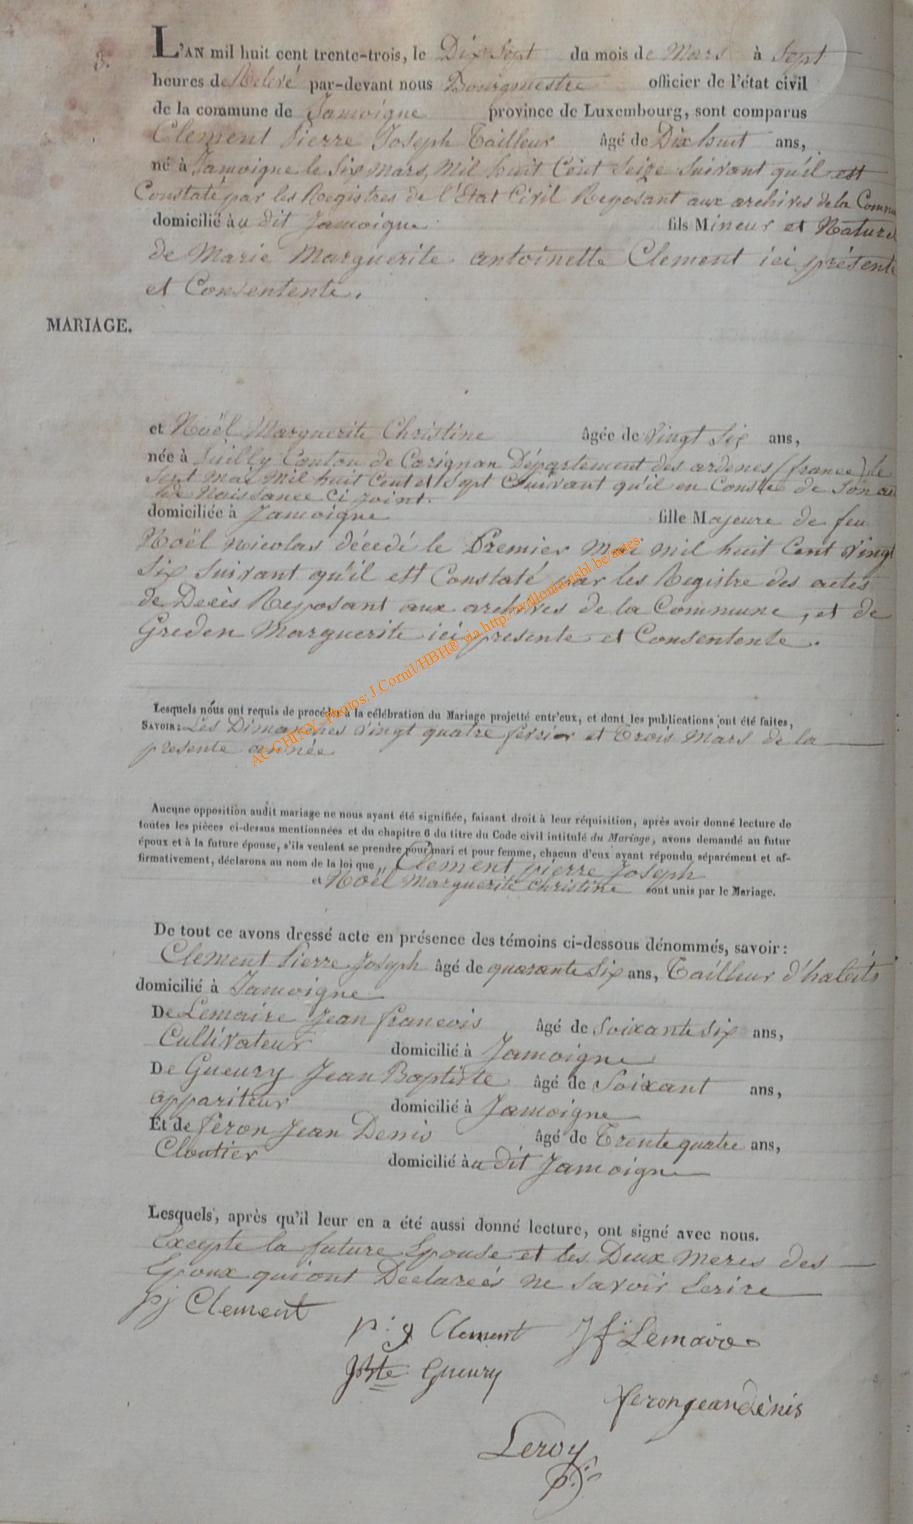 8.
L'AN mil huit cent trente-trois, le Dix Sept du mois de Mars à Sept
heures de Relevé par-devant nous Bourgmestre officier de l'état civil
de la commune de Jamoigne province de Luxembourg, sont comparus
Clement Pierre Joseph Tailleur âgé de Dix huit ans,
né à Jamoigne le Six Mars Mil huit Cent Seize Suivant qu'il est
Constaté par les Registres de l'Etat Civil Reposant aux archives de la Commu
domicilié à u dit Jamoigne fils Mineur et Naturel
de Marie Marguerite antoinette Clement ici présente
et Consentente.
MARIAGE.
et Noël Marguerite Christine âgée de Vingt Six ans,
née à Puilly Canton de Carignan Département des ardenes (france) le
Sept Mai Mil huit Cent et Sept Suivant qu'il en Conste de Son ac
te de Naissance Ci joint.
domiciliée à Jamoigne fille Majeure de feu
Noël Nicolas décedé le Premier Mai mil huit Cent Vingt
Six Suivant qu'il est Constaté par les Registre des actes
de Decès Reposant aux archives de la Commune, et de
Greden Marguerite ici presente et Consentente.
Lesquels nous ont requis de procéder à la célébration du Mariage projetté entr'eux, et dont les publications ont été faites,
SAVOIR: Les Dimanches Vingt quatre fevrier et Trois Mars de la
presente année
Aucune opposition audit mariage ne nous ayant été signifiée, faisant droit à leur réquisition, après avoir donné lecture de
toutes les pièces ci-dessus mentionnées et du chapitre 6 du titre du Code civil intitulé du Mariage, avons demandé au futur
époux et à la future épouse, s'ils veulent se prendre pour mari et pour femme, chacun d'eux ayant répondu séparément et af-
firmativement, déclarons au nom de la loi que Clement pierre Joseph
et Noël Marguerite Christine sont unis par le Mariage.
De tout ce avons dressé acte en présence des témoins ci-dessous dénommés, savoir:
Clement Pierre Joseph âgé de quarante Six ans, Tailleur d'habits
domicilié à Jamoigne
De Lemaire Jean francois âgé de Soixante Six ans,
Cultivateur domicilié à Jamoigne
De Gueury Jean Baptiste âgé de Soixant ans,
appariteur domicilié à Jamoigne
Et de Féron Jean Denis âgé de Trente quatre ans,
Cloutier domicilié à u dit Jamoigne
Lesquels, après qu'il leur en a été aussi donné lecture, ont signé avec nous.
Excepte la future Epouse et les Deux Meres des
Epoux qui ont Declareés ne Savoir Ecrire
pj Clement
p: j Clement Jf Lemaire
JBte Gueury
feron jean dènis
Leroy
AC CHINY - Photos: J.Cornil/HBH® via http://williomaasbl.be/actes